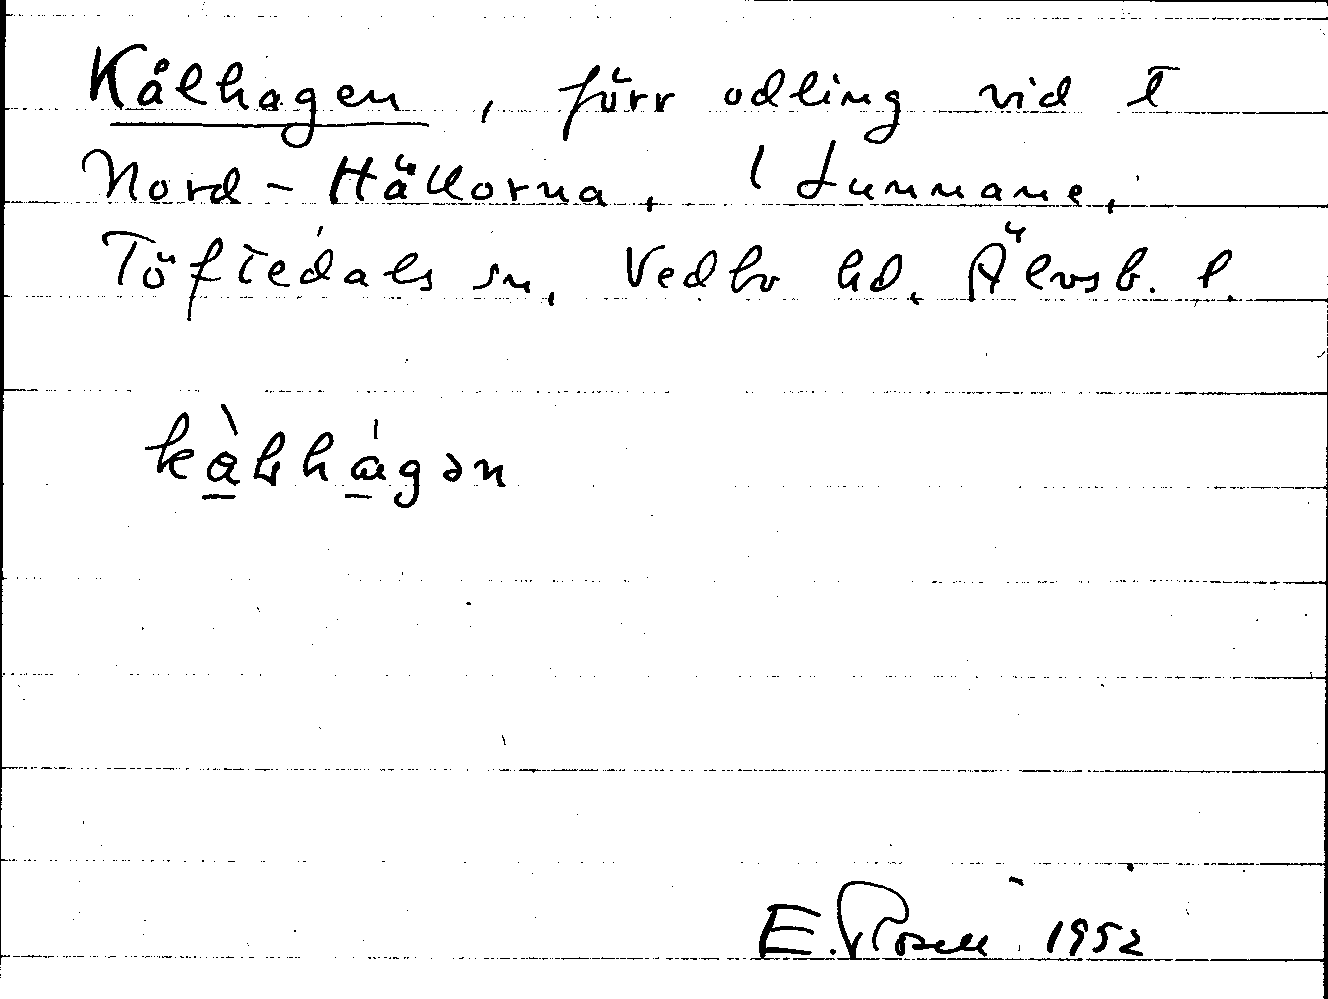 Kålhagen, förr odling vid t
Nord-Hällorna, 1 Lunnane,
Töftedals sn, Vedbo hd, Älvsb. l.
kålhagən
E. Rosell 1952